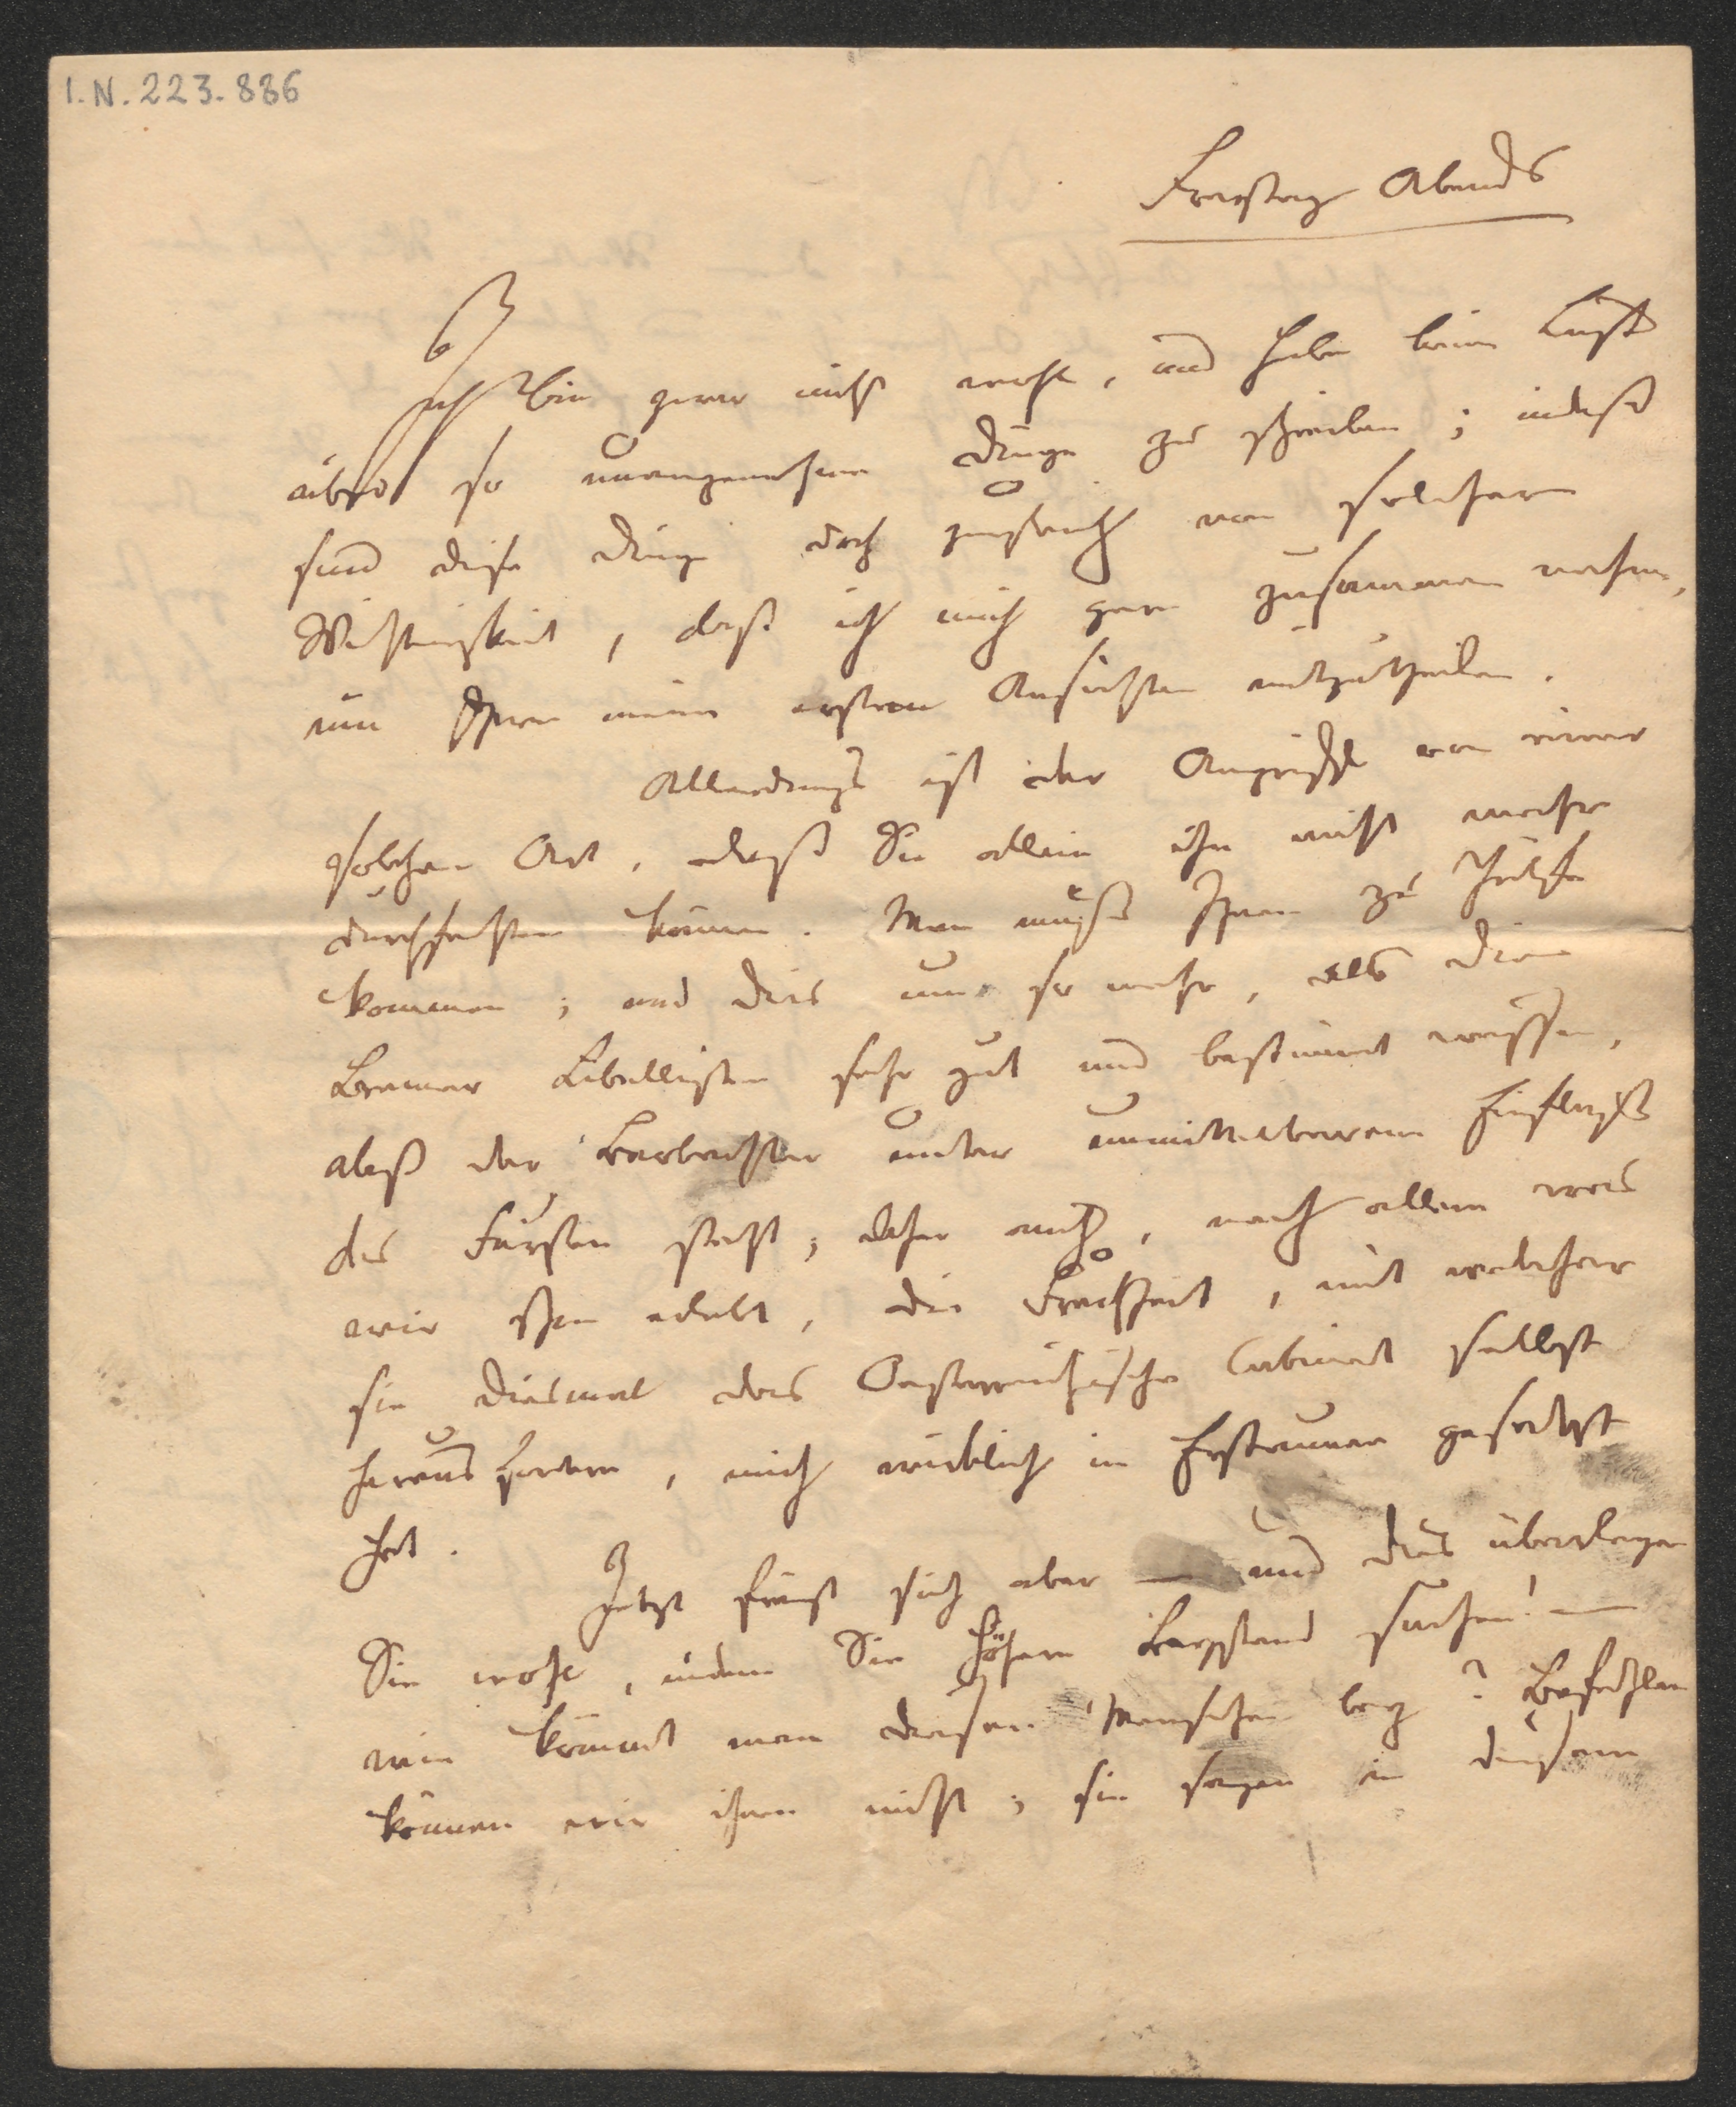 I.N. 223.886
Freytag Abends
Ich bin zwar nicht wohl, und habe keine Lust
über so unangenehme Dinge zu schreiben; indeß
sind diese Dinge doch zugleich von solcher
Wichtigkeit, daß ich mich gern zusammen nehme,
um Ihnen meine ersten Ansichten mitzutheilen.
Allerdings ist der Angriff von einer
solchen Art, daß Sie allein ihn nicht mehr
durchfechten können. Man muß Ihnen zu Hülfe
kommen; und dies um so mehr, als die
Bremer Libellisten sehr gut und bestimmt wissen,
daß der Beobachter unter unmittelbarem Einfluß
des Fürsten steht; daher auch, nach allem was
wir schon erlebt, die Frechheit, mit welcher
sie diesmal das Oesterreichische Cabinet selbst
herausfordern, mich wirklich in Erstaunen gesetzt
hat.
Jetzt frägt sich aber — und dies überlegen
Sie wohl, indem Sie höhern Beystand suchen! —
wie kömmt man diesen Menschen bey? Befehlen
können wir ihnen nicht; sie sagen in diesem